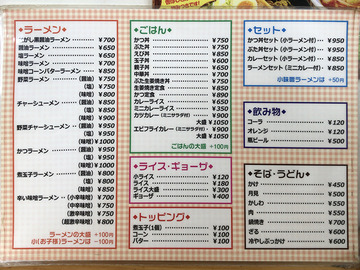 ラーメン
こがし黒醤油ラーメン ¥700
醤油ラーメン ¥650
塩ラーメン ¥650
味噌ラーメン ¥700
味噌コーンバターラーメン ¥850
野菜ラーメン (醤油) ¥750
(塩) ¥750
(味噌) ¥800
チャーシューメン (醤油) ¥850
(塩) ¥850
(味噌) ¥900
野菜チャーシューメン (醤油) ¥950
(塩) ¥950
(味噌) ¥1000
かつラーメン (醤油) ¥950
(塩) ¥950
(味噌) ¥1000
煮玉子ラーメン (醤油) ¥750
(塩) ¥750
(味噌) ¥800
辛い味噌ラーメン (小辛味噌) ¥700
(中辛味噌) ¥750
(激辛味噌) ¥750
(超激辛味噌) ¥800
ラーメンの大盛 +100円
小(お子様)ラーメンは -100円
ごはん
かつ丼 ¥750
ぶた丼 ¥750
えび丼 ¥850
玉子丼 ¥600
親子丼 ¥650
中華丼 ¥700
ぶた生姜焼き丼 ¥750
生姜焼き定食 ¥850
かつ定食 ¥850
カレーライス ¥650
ミニカレーライス ¥350
カツカレー(ミニサラダ付) ¥900
大盛 ¥1050
エビフライカレー(ミニサラダ付) ¥900
大盛 ¥1050
ごはんの大盛 +100円
ライス・ギョーザ
小ライス ¥120
ライス ¥180
ライス大盛 ¥300
ギョーザ ¥400
トッピング
煮玉子(1個) ¥100
コーン ¥100
バター ¥100
セット
かつ丼セット(小ラーメン付) ¥950
ぶた丼セット(小ラーメン付) ¥950
カレーセット(小ラーメン付) ¥850
ラーメンセット(ミニカレー付) ¥850
小味噌ラーメンは +50円
飲み物
コーラ ¥120
オレンジ ¥120
瓶ビール ¥500
そば・うどん
かけ ¥450
月見 ¥500
かしわ ¥550
肉 ¥550
鍋焼き ¥700
ざる ¥600
冷やしぶっかけ ¥600